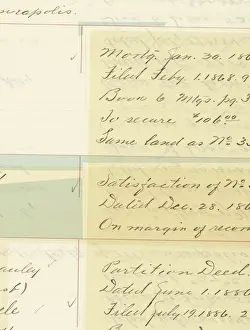 nneapolis.
Mortg. Jan. 30. 186
Filed Feby. 1. 1868. 9
Book 6 Mtgs. pg. 3
To secure $106.00
Same land as No. 33
Satisfaction of No.
Dated Dec. 28. 186
On margin of recor
auley
Partition Deed.
st)
Dated June 1. 1886
ele
Filed July 19. 1886. 2